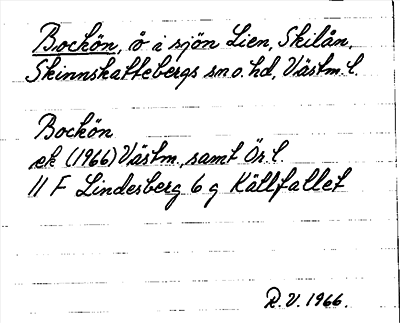 Bockön, ö i sjön Lien, Skilån,
Skinnskattebergs sn o. hd, Västm. l.
Bockön
ek (1966) Västm., samt Ör. l.
11 F Lindesberg 6 g Källfallet
R. V. 1966.